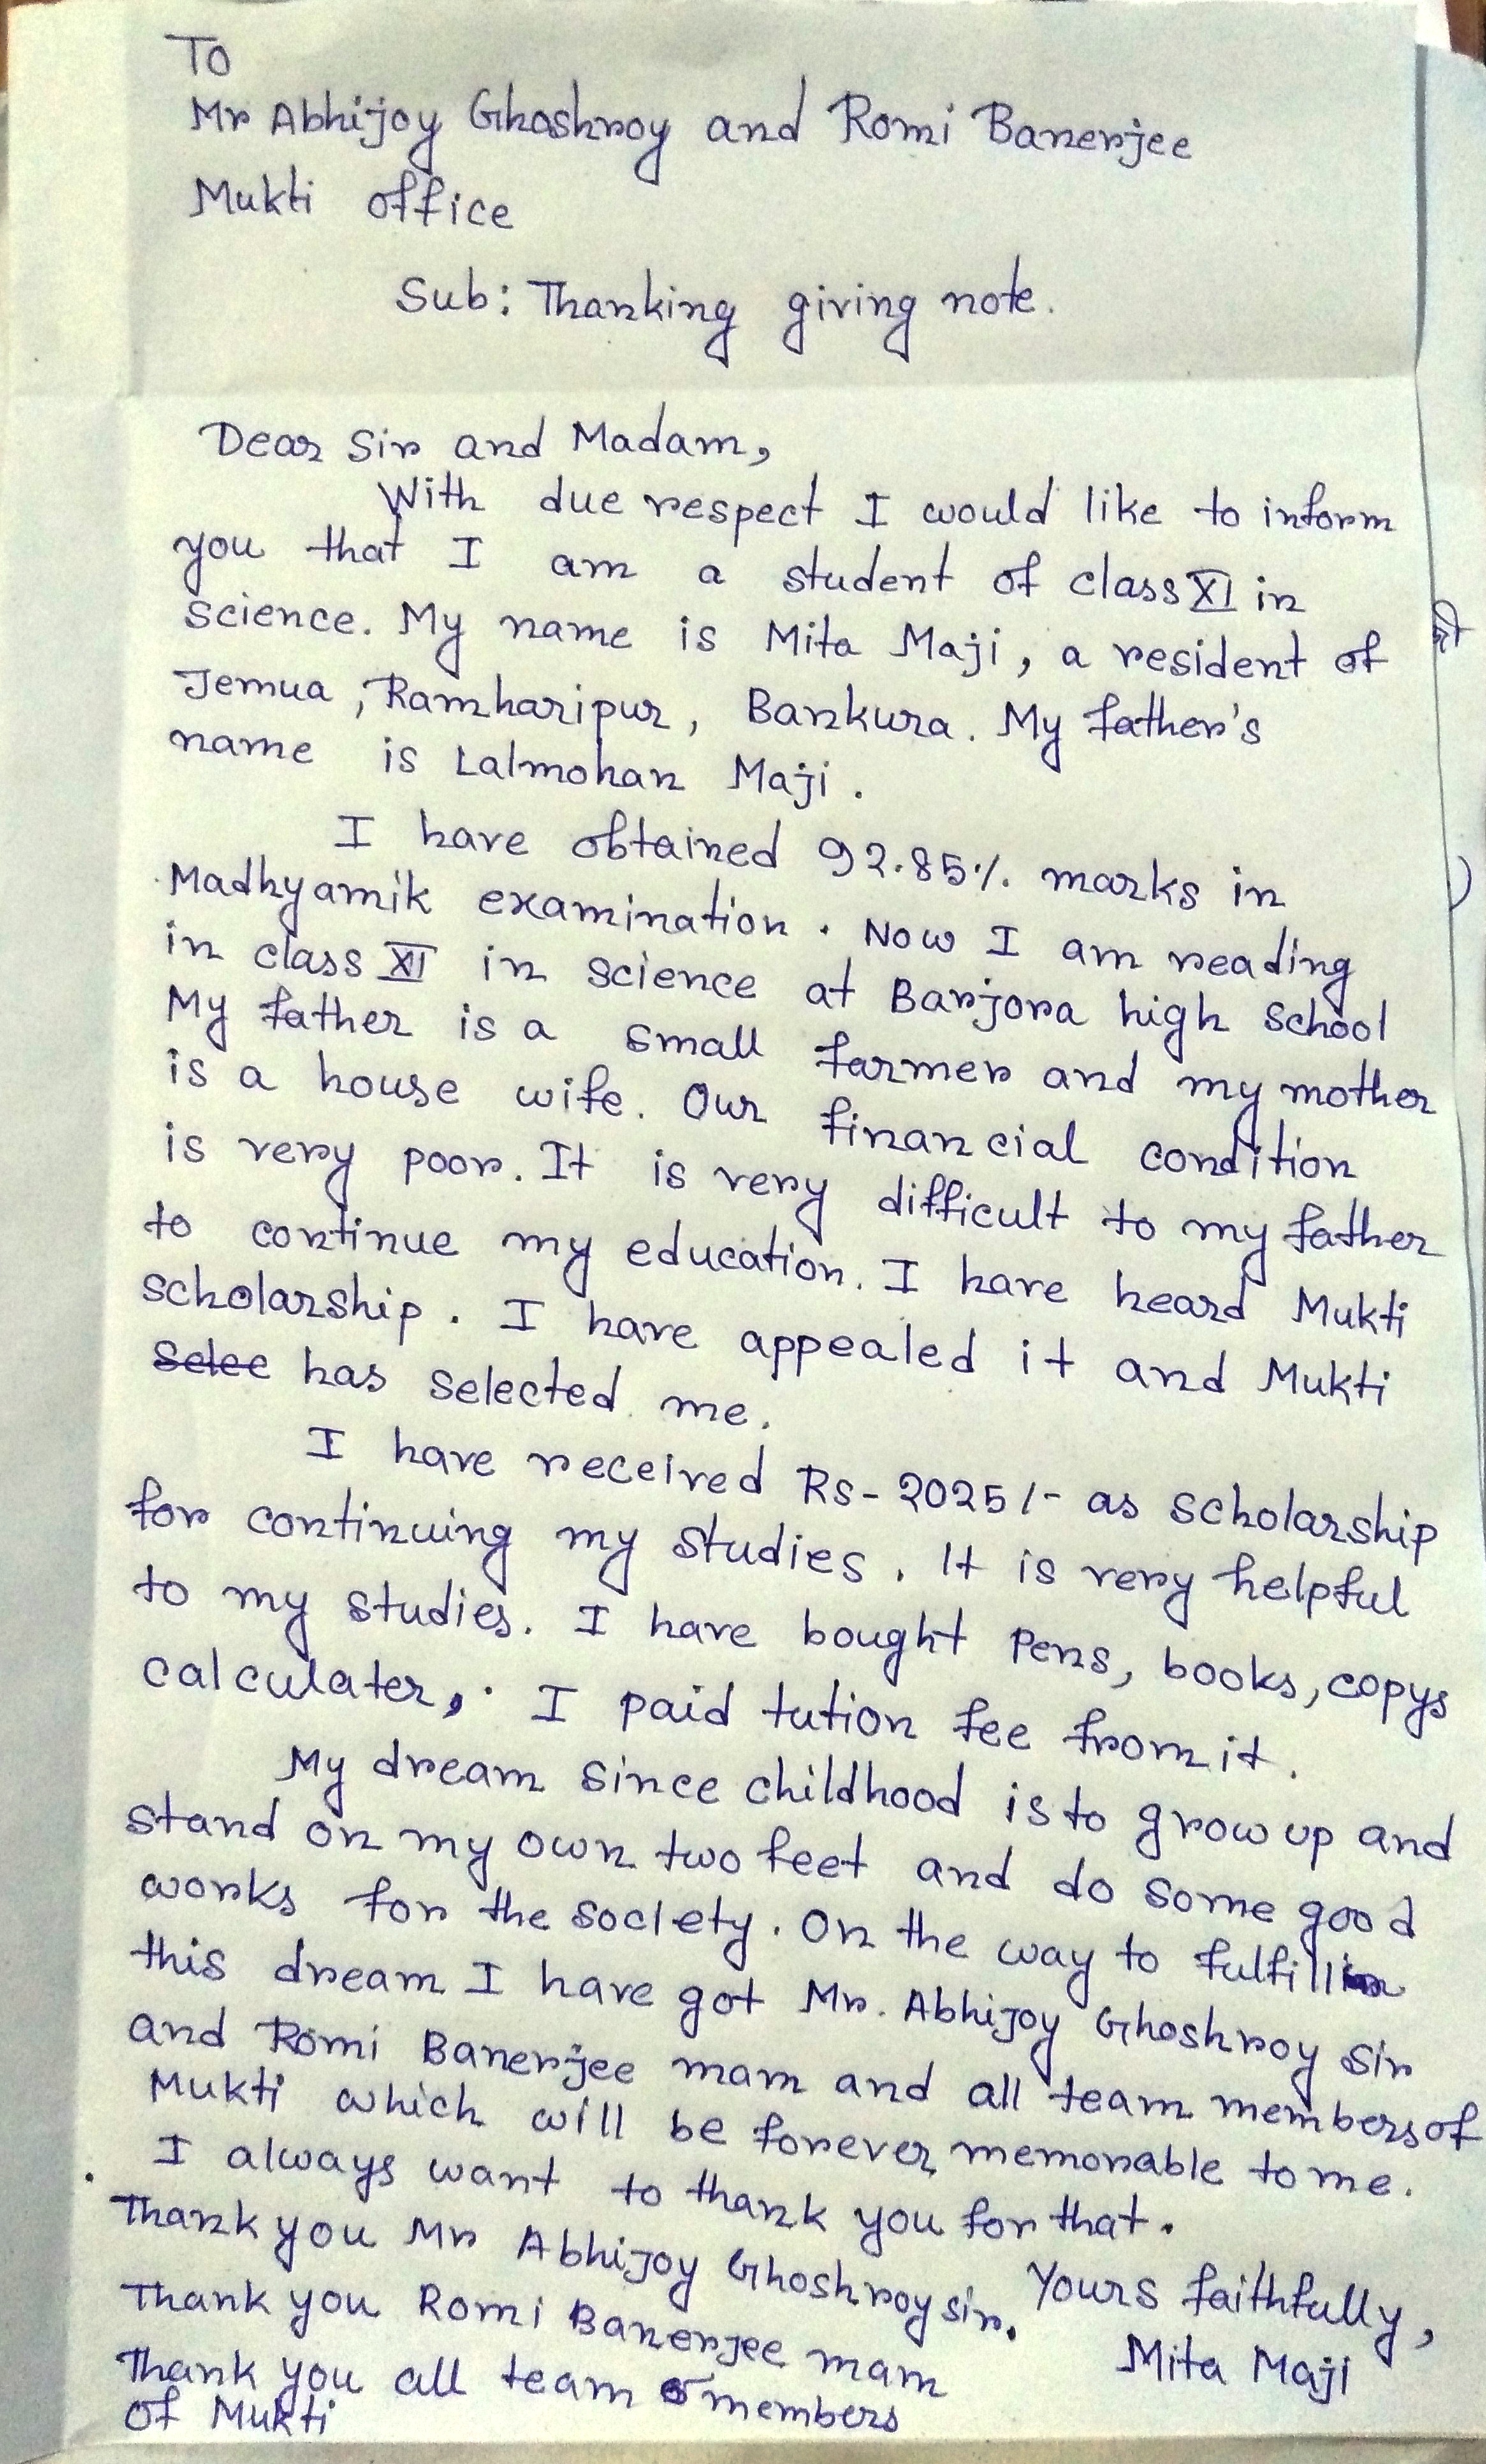 To
Mr Abhijoy Ghoshroy and Romi Banerjee
Mukti office
Sub: Thanking giving note.
Dear Sir and Madam,
With due respect I would like to inform
you that I am a student of class XI in
science. My name is Mita Maji, a resident of
Jemua, Ramharipur, Bankura. My father's
name is Lalmohan Maji.
I have obtained 92.85% marks in
Madhyamik examination. Now I am reading
in class XI in science at Barjora high school
My father is a small farmer and my mother
is a house wife. Our financial condition
is very poor. It is very difficult to my father
to continue my education. I have heard Mukti
scholarship. I have appealed it and Mukti
Selec has selected me.
I have received Rs-2025/- as scholarship
for continuing my studies. It is very helpful
to my studies. I have bought pens, books, copys
calculater,. I paid tution fee from it.
My dream since childhood is to grow up and
stand on my own two feet and do some good
works for the society. On the way to fulfill
this dream I have got Mr. Abhijoy Ghoshroy sir
and Romi Banerjee mam and all team members of
Mukti which will be forever memorable to me.
I always want to thank you for that.
Thank you Mr Abhijoy Ghoshroy sir.
Thank you Romi Banerjee mam
Thank you all team members
of Mukti
Yours faithfully,
Mita Maji